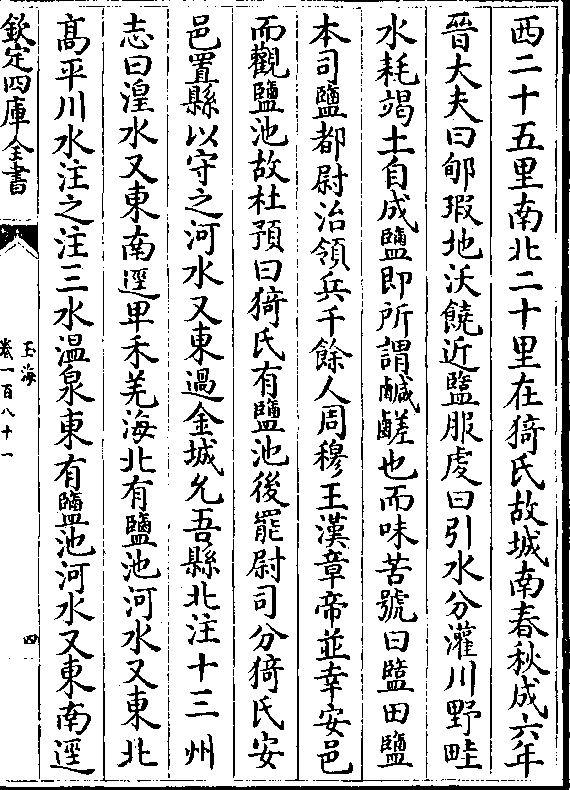 西二十五里南北二十里在猗氏故城南春秋成六年
晉大夫曰郇瑕地沃饒近鹽服䖍曰引水分灌川野畦
水耗竭土自成鹽即所謂鹹鹺也而味苦號曰鹽田鹽
本司鹽都尉治領兵千餘人周穆王漢章帝並幸安邑
而觀鹽池故杜預曰猗氏有鹽池後罷尉司分猗氏安
邑置縣以守之河水又東過金城允吾縣北注十三州
志曰湟水又東南逕卑禾羌海北有鹽池河水又東北
髙平川水注之注三水温泉東有鹽池河水又東南逕
欽定四庫全書
玉海
卷一百八十一
四